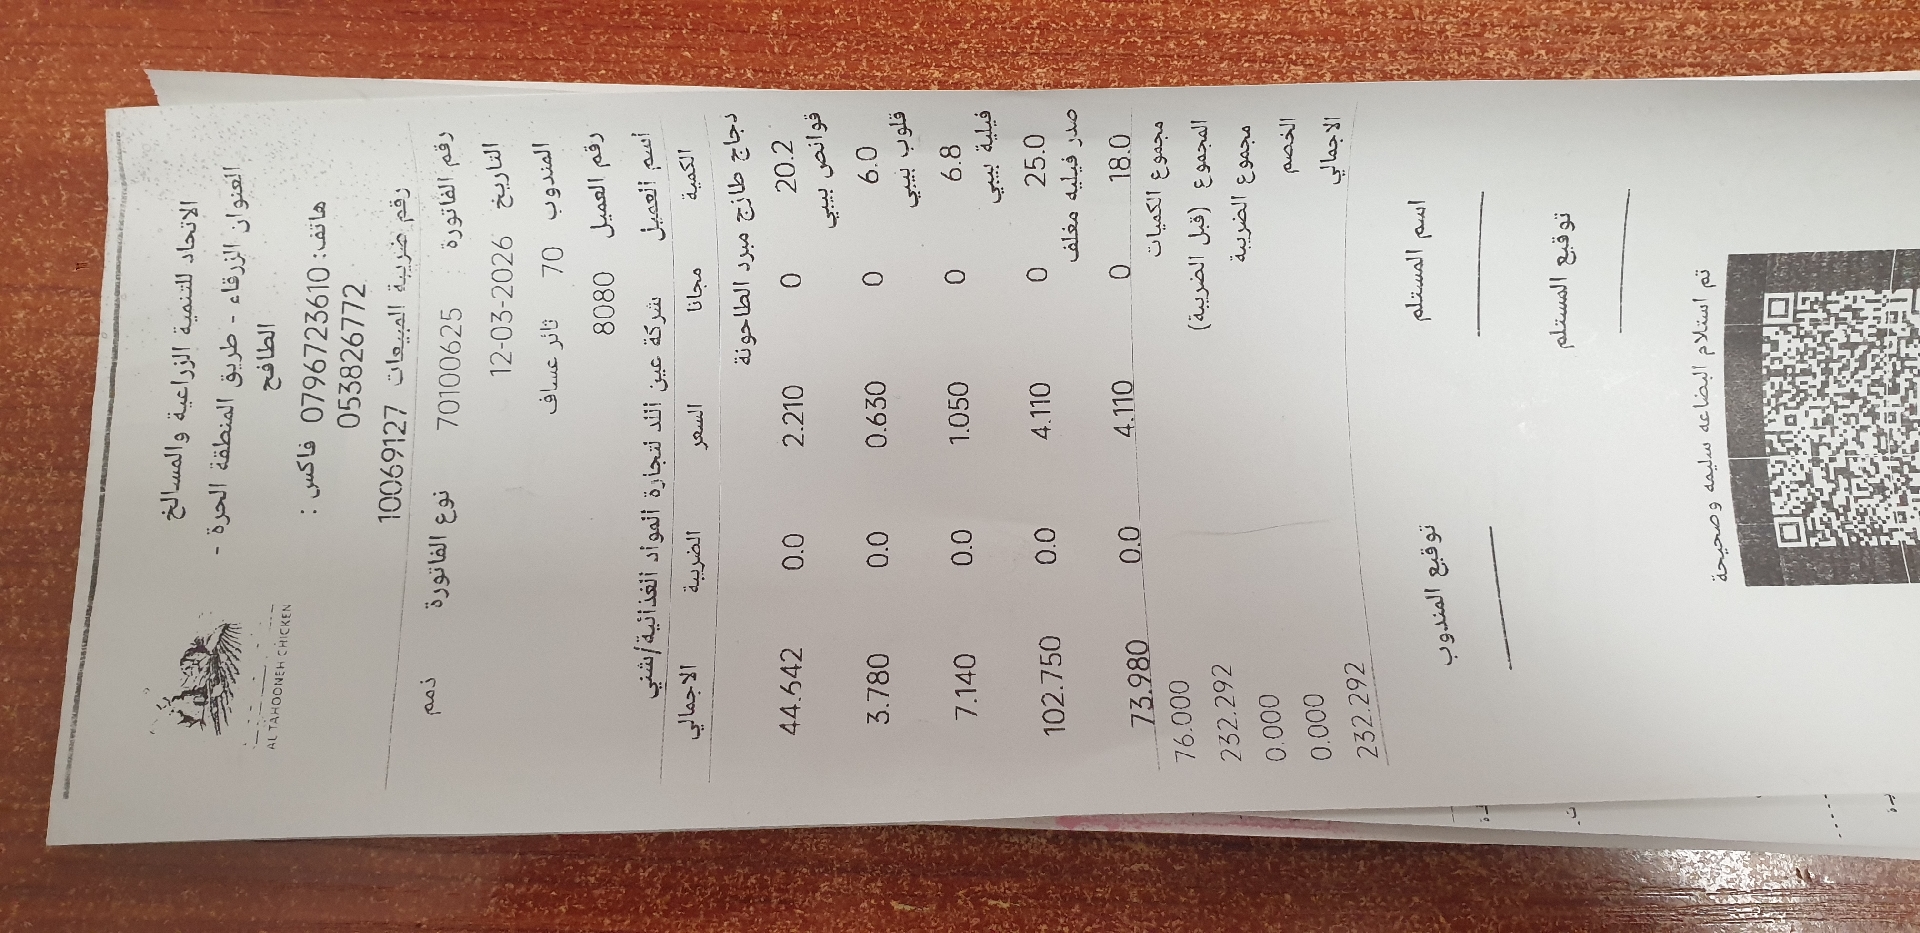 AL TAHOONEH CHICKEN
الاتحاد للتنمية الزراعية والمسالخ
العنوان الزرقاء - طريق المنطقة الحرة -
الطافح
هاتف: 0796723610 فاكس :
053826772
رقم ضريبة المبيعات 10069127
رقم الفاتورة 70100625 نوع الفاتورة ذمم
التاريخ 12-03-2026
المندوب 70 ثائر عساف
رقم العميل 8080
اسم العميل شركة عين اللد لتجارة المواد الغذائية/شني
الكمية مجانا السعر الضريبة الاجمالي
دجاج طازج مبرد الطاحونة
20.2 0 2.210 0.0 44.642
قوانص بيبي
6.0 0 0.630 0.0 3.780
قلوب بيبي
6.8 0 1.050 0.0 7.140
فيلية بيبي
25.0 0 4.110 0.0 102.750
صدر فيليه مغلف
18.0 0 4.110 0.0 73.980
مجموع الكميات 76.000
المجموع (قبل الضريبة) 232.292
مجموع الضريبة 0.000
الخصم 0.000
الاجمالي 232.292
اسم المستلم توقيع المندوب
توقيع المستلم
تم استلام البضاعه سليمه وصحيحة